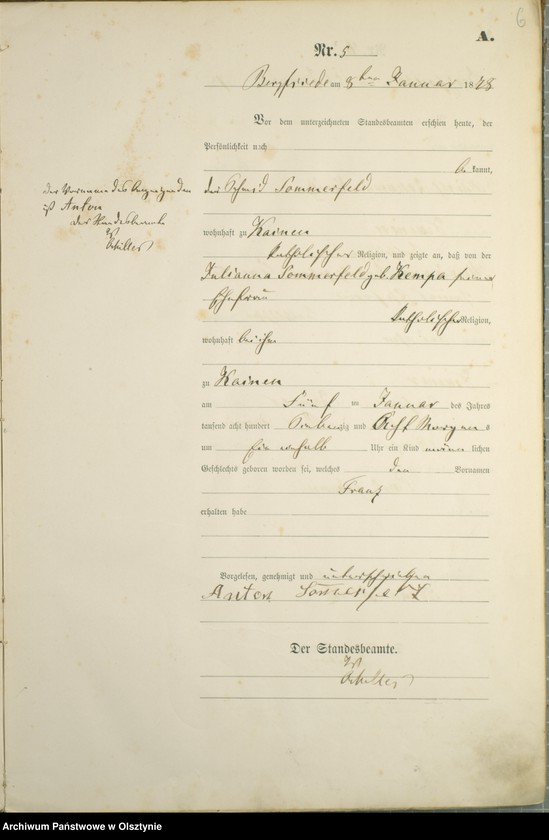 6
A.
Nr. 5
Bergfriede am 8ten Januar 1878
Vor dem unterzeichneten Standesbeamten erschien heute, der
Persönlichkeit nach
bekannt,
der Sommerfeld
wohnhaft zu Kainen
katholischer Religion, und zeigte an, daß von der
Julianna Sommerfeld geb. Kempa seiner
Ehefrau
katholischer Religion,
wohnhaft bei ihm
zu Kainen
am Fünf ten Januar des Jahres
tausend acht hundert siebenzig und Acht Morgens
um Uhr ein Kind männlichen
Geschlechts geboren worden sei, welches den Vornamen
Franz
erhalten habe
Vorgelesen, genehmigt und unterschrieben
Anton Sommerfeld
Der Standesbeamte.
Schulter
der Vorname des Anzeigenden
ist Anton
Der Standesbeamte
Schulter
Archiwum Państwowe w Olsztynie